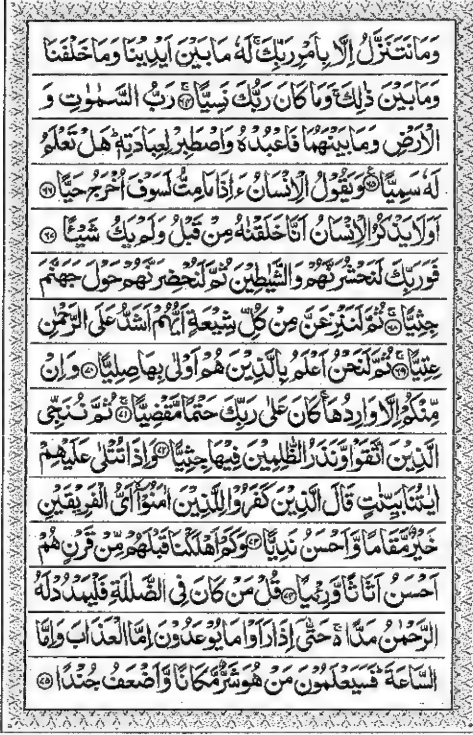 وَمَا نَتَنَزَّلُ اِلَّا بِاَمْرِ رَبِّكَ ۚ لَهٗ مَا بَيْنَ اَيْدِيْنَا وَمَا خَلْفَنَا
وَمَا بَيْنَ ذٰلِكَ ۚ وَمَا كَانَ رَبُّكَ نَسِيًّا ۚ ﴿۶۴﴾ رَبُّ السَّمٰوٰتِ وَ
الْاَرْضِ وَمَا بَيْنَهُمَا فَاعْبُدْهُ وَاصْطَبِرْ لِعِبَادَتِهٖ ؕ هَلْ تَعْلَمُ
لَهٗ سَمِيًّا ﴿۶۵﴾ وَيَقُوْلُ الْاِنْسَانُ ءَاِذَا مَا مِتُّ لَسَوْفَ اُخْرَجُ حَيًّا ﴿۶۶﴾
اَوَلَا يَذْكُرُ الْاِنْسَانُ اَنَّا خَلَقْنٰهُ مِنْ قَبْلُ وَلَمْ يَكُ شَيْـًٔا ﴿۶۷﴾
فَوَرَبِّكَ لَنَحْشُرَنَّهُمْ وَالشَّيٰطِيْنَ ثُمَّ لَنُحْضِرَنَّهُمْ حَوْلَ جَهَنَّمَ
جِثِيًّا ۚ ﴿۶۸﴾ ثُمَّ لَنَنْزِعَنَّ مِنْ كُلِّ شِيْعَةٍ اَيُّهُمْ اَشَدُّ عَلَى الرَّحْمٰنِ
عِتِيًّا ۚ ﴿۶۹﴾ ثُمَّ لَنَحْنُ اَعْلَمُ بِالَّذِيْنَ هُمْ اَوْلٰى بِهَا صِلِيًّا ﴿۷۰﴾ وَاِنْ
مِّنْكُمْ اِلَّا وَارِدُهَا ۚ كَانَ عَلٰى رَبِّكَ حَتْمًا مَّقْضِيًّا ۚ ﴿۷۱﴾ ثُمَّ نُنَجِّى
الَّذِيْنَ اتَّقَوْا وَّنَذَرُ الظّٰلِمِيْنَ فِيْهَا جِثِيًّا ﴿۷۲﴾ وَاِذَا تُتْلٰى عَلَيْهِمْ
اٰيٰتُنَا بَيِّنٰتٍ قَالَ الَّذِيْنَ كَفَرُوْا لِلَّذِيْنَ اٰمَنُوْۤا ۙ اَىُّ الْفَرِيْقَيْنِ
خَيْرٌ مَّقَامًا وَّاَحْسَنُ نَدِيًّا ﴿۷۳﴾ وَكَمْ اَهْلَكْنَا قَبْلَهُمْ مِّنْ قَرْنٍ هُمْ
اَحْسَنُ اَثَاثًا وَّرِءْيًا ﴿۷۴﴾ قُلْ مَنْ كَانَ فِى الضَّلٰلَةِ فَلْيَمْدُدْ لَهُ
الرَّحْمٰنُ مَدًّا ۚ حَتّٰٓى اِذَا رَاَوْا مَا يُوْعَدُوْنَ اِمَّا الْعَذَابَ وَاِمَّا
السَّاعَةَ ؕ فَسَيَعْلَمُوْنَ مَنْ هُوَ شَرٌّ مَّكَانًا وَّاَضْعَفُ جُنْدًا ﴿۷۵﴾